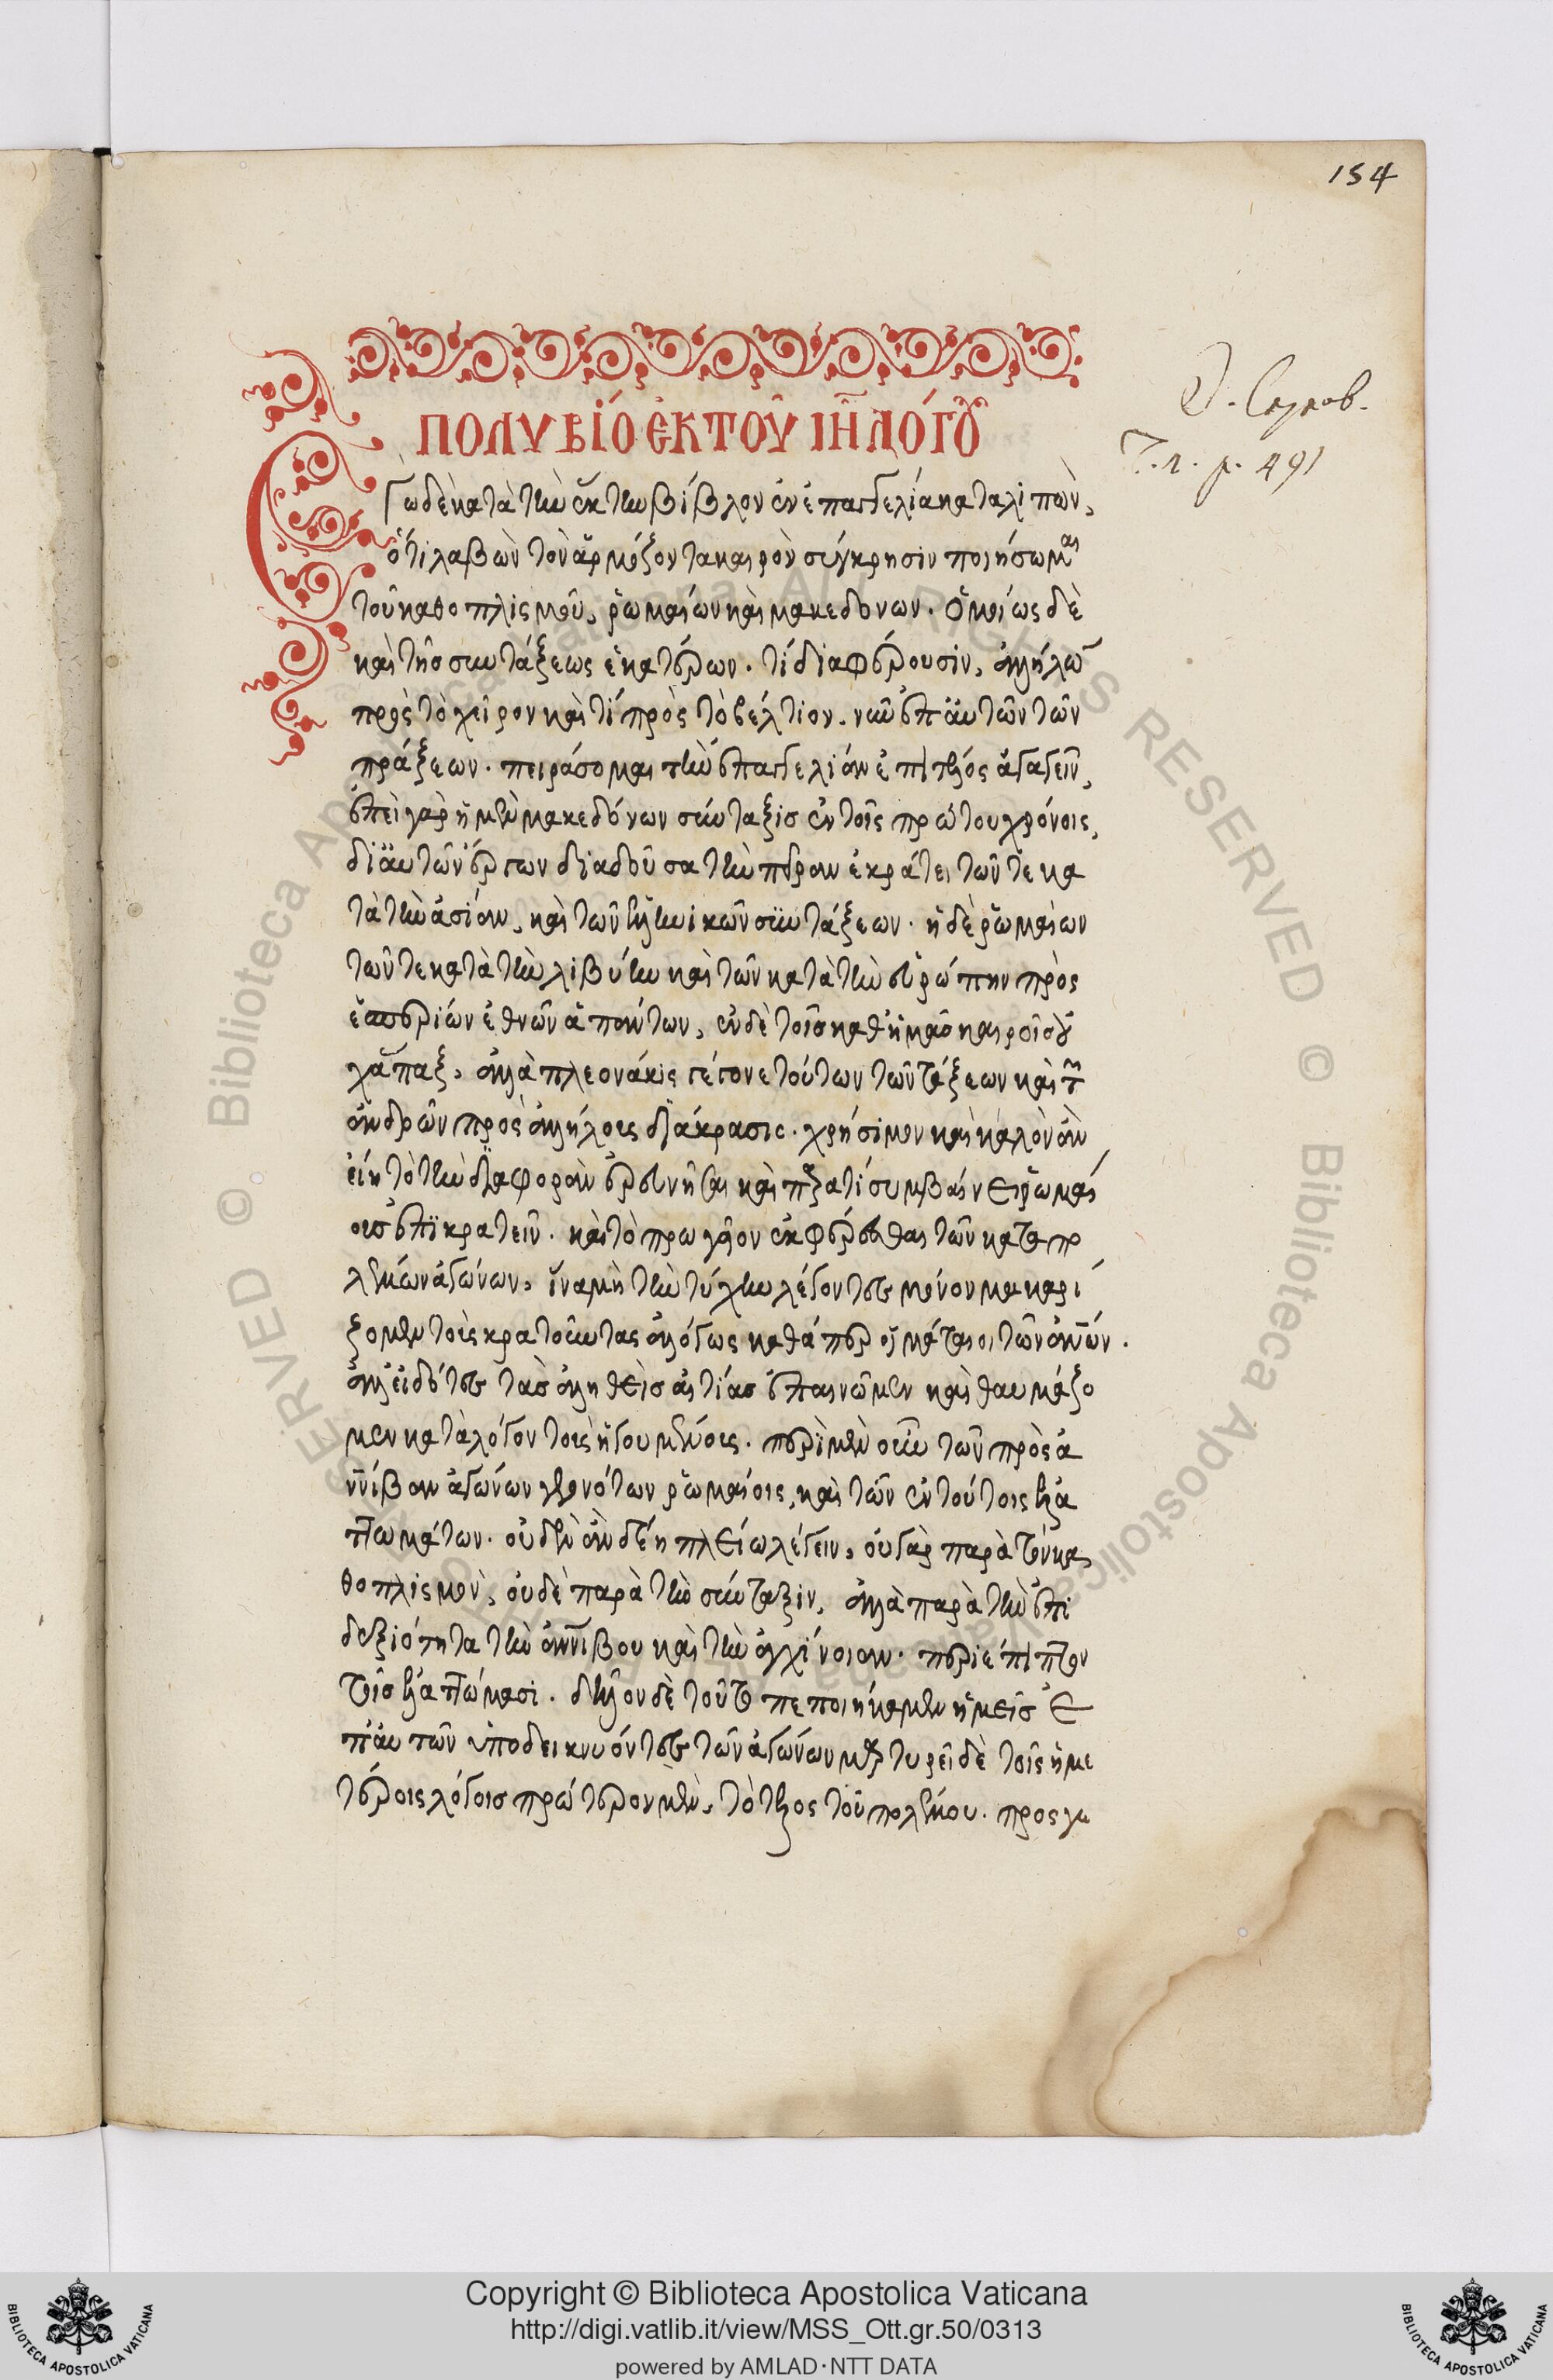 154
ΠΟΛΥΒΙΟ ἐΚ ΤΟΥ ΙΗ ΛΟΓΟΥ
Ἐγὼ δὲ κατὰ τὴν ἕκτην βίβλον ἐν ἐπαγγελία καταλιπὼν,
ὅτι λαβὼν τὸν ἁρμόζοντα καιρὸν σύγκρησιν ποιήσωμαι
τοῦ καθοπλισμοῦ, ῥωμαίων καὶ μακεδόνων. ὁμοίως δὲ
καὶ τῆς συντάξεως ἑκατέρων. τί διαφέρουσιν, ἀλλήλων
πρὸς τὸ χεῖρον καὶ τί πρὸς τὸ βέλτιον. νῦν ἐπ' αὐτῶν τῶν
πράξεων. πειράσομαι τὴν ἐπαγγελίαν ἐπὶ τέλος ἀγαγεῖν,
ἐπεὶ γὰρ ἡ μὲν μακεδόνων σύνταξις ἐν τοῖς πρώτου χρόνοις,
δι' αὐτῶν ἔργων διδοῦσα τὴν πεῖραν ἐκράτει τῶν τε κα
τὰ τὴν ἀσίαν, καὶ τῶν ἑλληνικῶν συντάξεων. ἡ δὲ ῥωμαίων
τῶν τε κατὰ τὴν λιβύην καὶ τῶν κατὰ τὴν εὐρώπην πρὸς
ἑσπερίων ἐθνῶν ἁπάντων, ἐν δὲ τοῖς καθ' ἡμᾶς καιροῖς οὐ
χ' ἅπαξ, ἀλλὰ πλεονάκις γέγονε τούτων τῶν τάξεων καὶ τῶν
ἀνδρῶν πρὸς ἀλλήλους διάκρασις. χρήσιμον καὶ καλὸν ἂν
εἴη τὸ τὴν διαφορὰν ἐρευνῆσαι καὶ παρὰ τί συμβαίνει ῥωμαί
ους ἐπικρατεῖν. καὶ τὸ πρωτεῖον ἐκφέρεσθαι τῶν κατὰ πο
λέμων ἀγώνων, ἵνα μὴ τὴν τύχην λέγοντες μόνον μακαρί
ζομεν τοὺς κρατοῦντας ἀλόγως καθάπερ οἱ μάταιοι τῶν ἀνθρώπων.
ἀλλ' εἰδότες τὰς ἀληθεῖς αἰτίας ἐπαινῶμεν καὶ θαυμάζο
μεν κατὰ λόγον τοὺς ἡγουμένους. περὶ μὲν οὖν τῶν πρὸς ἀ
ννίβαν ἀγώνων γεγονότων ῥωμαίοις, καὶ τῶν ἐν τούτοις ἐλα
ττωμάτων. οὐδὲν ἂν δέῃ πλείω λέγειν, οὐ γὰρ παρὰ τὸν κα
θοπλισμὸν, οὐδὲ παρὰ τὴν σύνταξιν, ἀλλὰ παρὰ τὴν ἐπι
δεξιότητα τὴν ἀννίβου καὶ τὴν ἀγχίνοιαν. περιέπιπτον
τοῖς ἐλαττώμασι. δῆλον δὲ τοῦτο πεποιήκαμεν ἡμεῖς ἐ
π' αὐτῶν ὑποδεικνυόντες τῶν ἀγώνων μαρτυρεῖ δὲ τοῖς ἡμε
τέροις λόγοις πρώτερον μὲν, τὸ τέλος τοῦ πολέμου. προσγε
p. 491
Copyright © Biblioteca Apostolica Vaticana
http://digi.vatlib.it/view/MSS_Ott.gr.50/0313
powered by AMLAD·NTT DATA
BIBLIOTECA APOSTOLICA VATICANA
BIBLIOTECA APOSTOLICA VATICANA